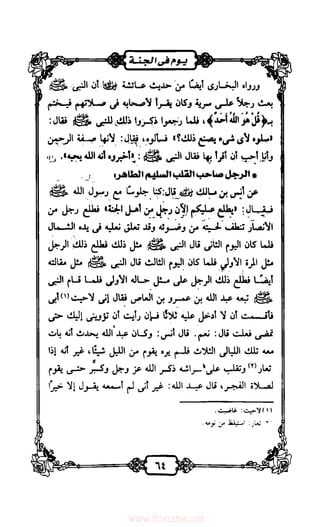 يوم فى الجنة
ورواه البخارى أيضًا من حديث عائشة أن النبى ﷺ
بعث رجلاً على سرية وكان يقرأ لأصحابه فى صلاتهم فيختم
بـ﴿قُلْ هُوَ اللَّهُ أَحَدٌ﴾، فلما رجعوا ذكروا ذلك للنبى ﷺ فقال:
«سلوه لأى شىء يصنع ذلك؟» فسألوه، فقال: لأنها صفة الرحمن
وأنا أحب أن أقرأ بها فقال النبى ﷺ: «أخبروه أن الله يحبه».
* الرجل صاحب القلب السليم الطاهر:
عن أنس بن مالك قال: كنا جلوسًا مع رسول الله
فقال: «يطلع عليكم الآن رجل من أهل الجنة» فطلع رجل من
الأنصار تنطف لحيته من وضوئه وقد تعلق نعليه فى يده الشمال
فلما كان اليوم الثانى قال النبى ﷺ مثل ذلك فطلع ذلك الرجل
مثل المرة الأولى فلما كان اليوم الثالث قال النبى ﷺ مثل مقالته
أيضًا فطلع ذلك الرجل على مثل حاله الأولى فلما قام النبى
ﷺ تبعه عبد الله بن عمرو بن العاص فقال إنى لاحيت(١) أبى
فأقسمت أن لا أدخل عليه ثلاثًا فإن رأيت أن تؤوينى إليك حتى
تمضى فعلت قال: نعم. قال أنس: وكان عبد الله يحدث أنه بات
معه تلك الليالى الثلاث فلم يره يقوم من الليل شيئًا، غير أنه إذا
تعار(٢) وتقلب على فراشه ذكر الله عز وجل وكبر حتى يقوم
لصلاة الفجر، قال عبد الله: غير أنى لم أسمعه يقول إلا خيرًا
(١) لاحيت: غاضبت.
(٢) تعار: استيقظ من نومه.
٦٤
www.ibtesama.com